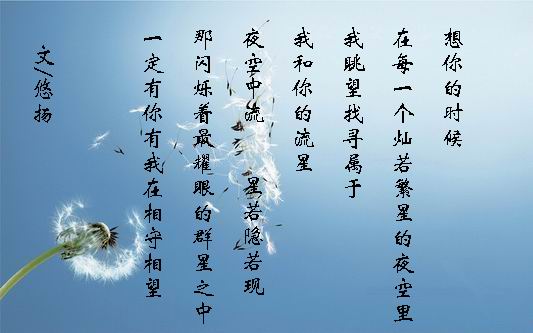 想你的时候
在每一个灿若繁星的夜空里
我眺望找寻属于
我和你的流星
夜空中流 星若隐若现
那闪烁着最耀眼的群星之中
一定有你有我在相守相望
文/悠扬